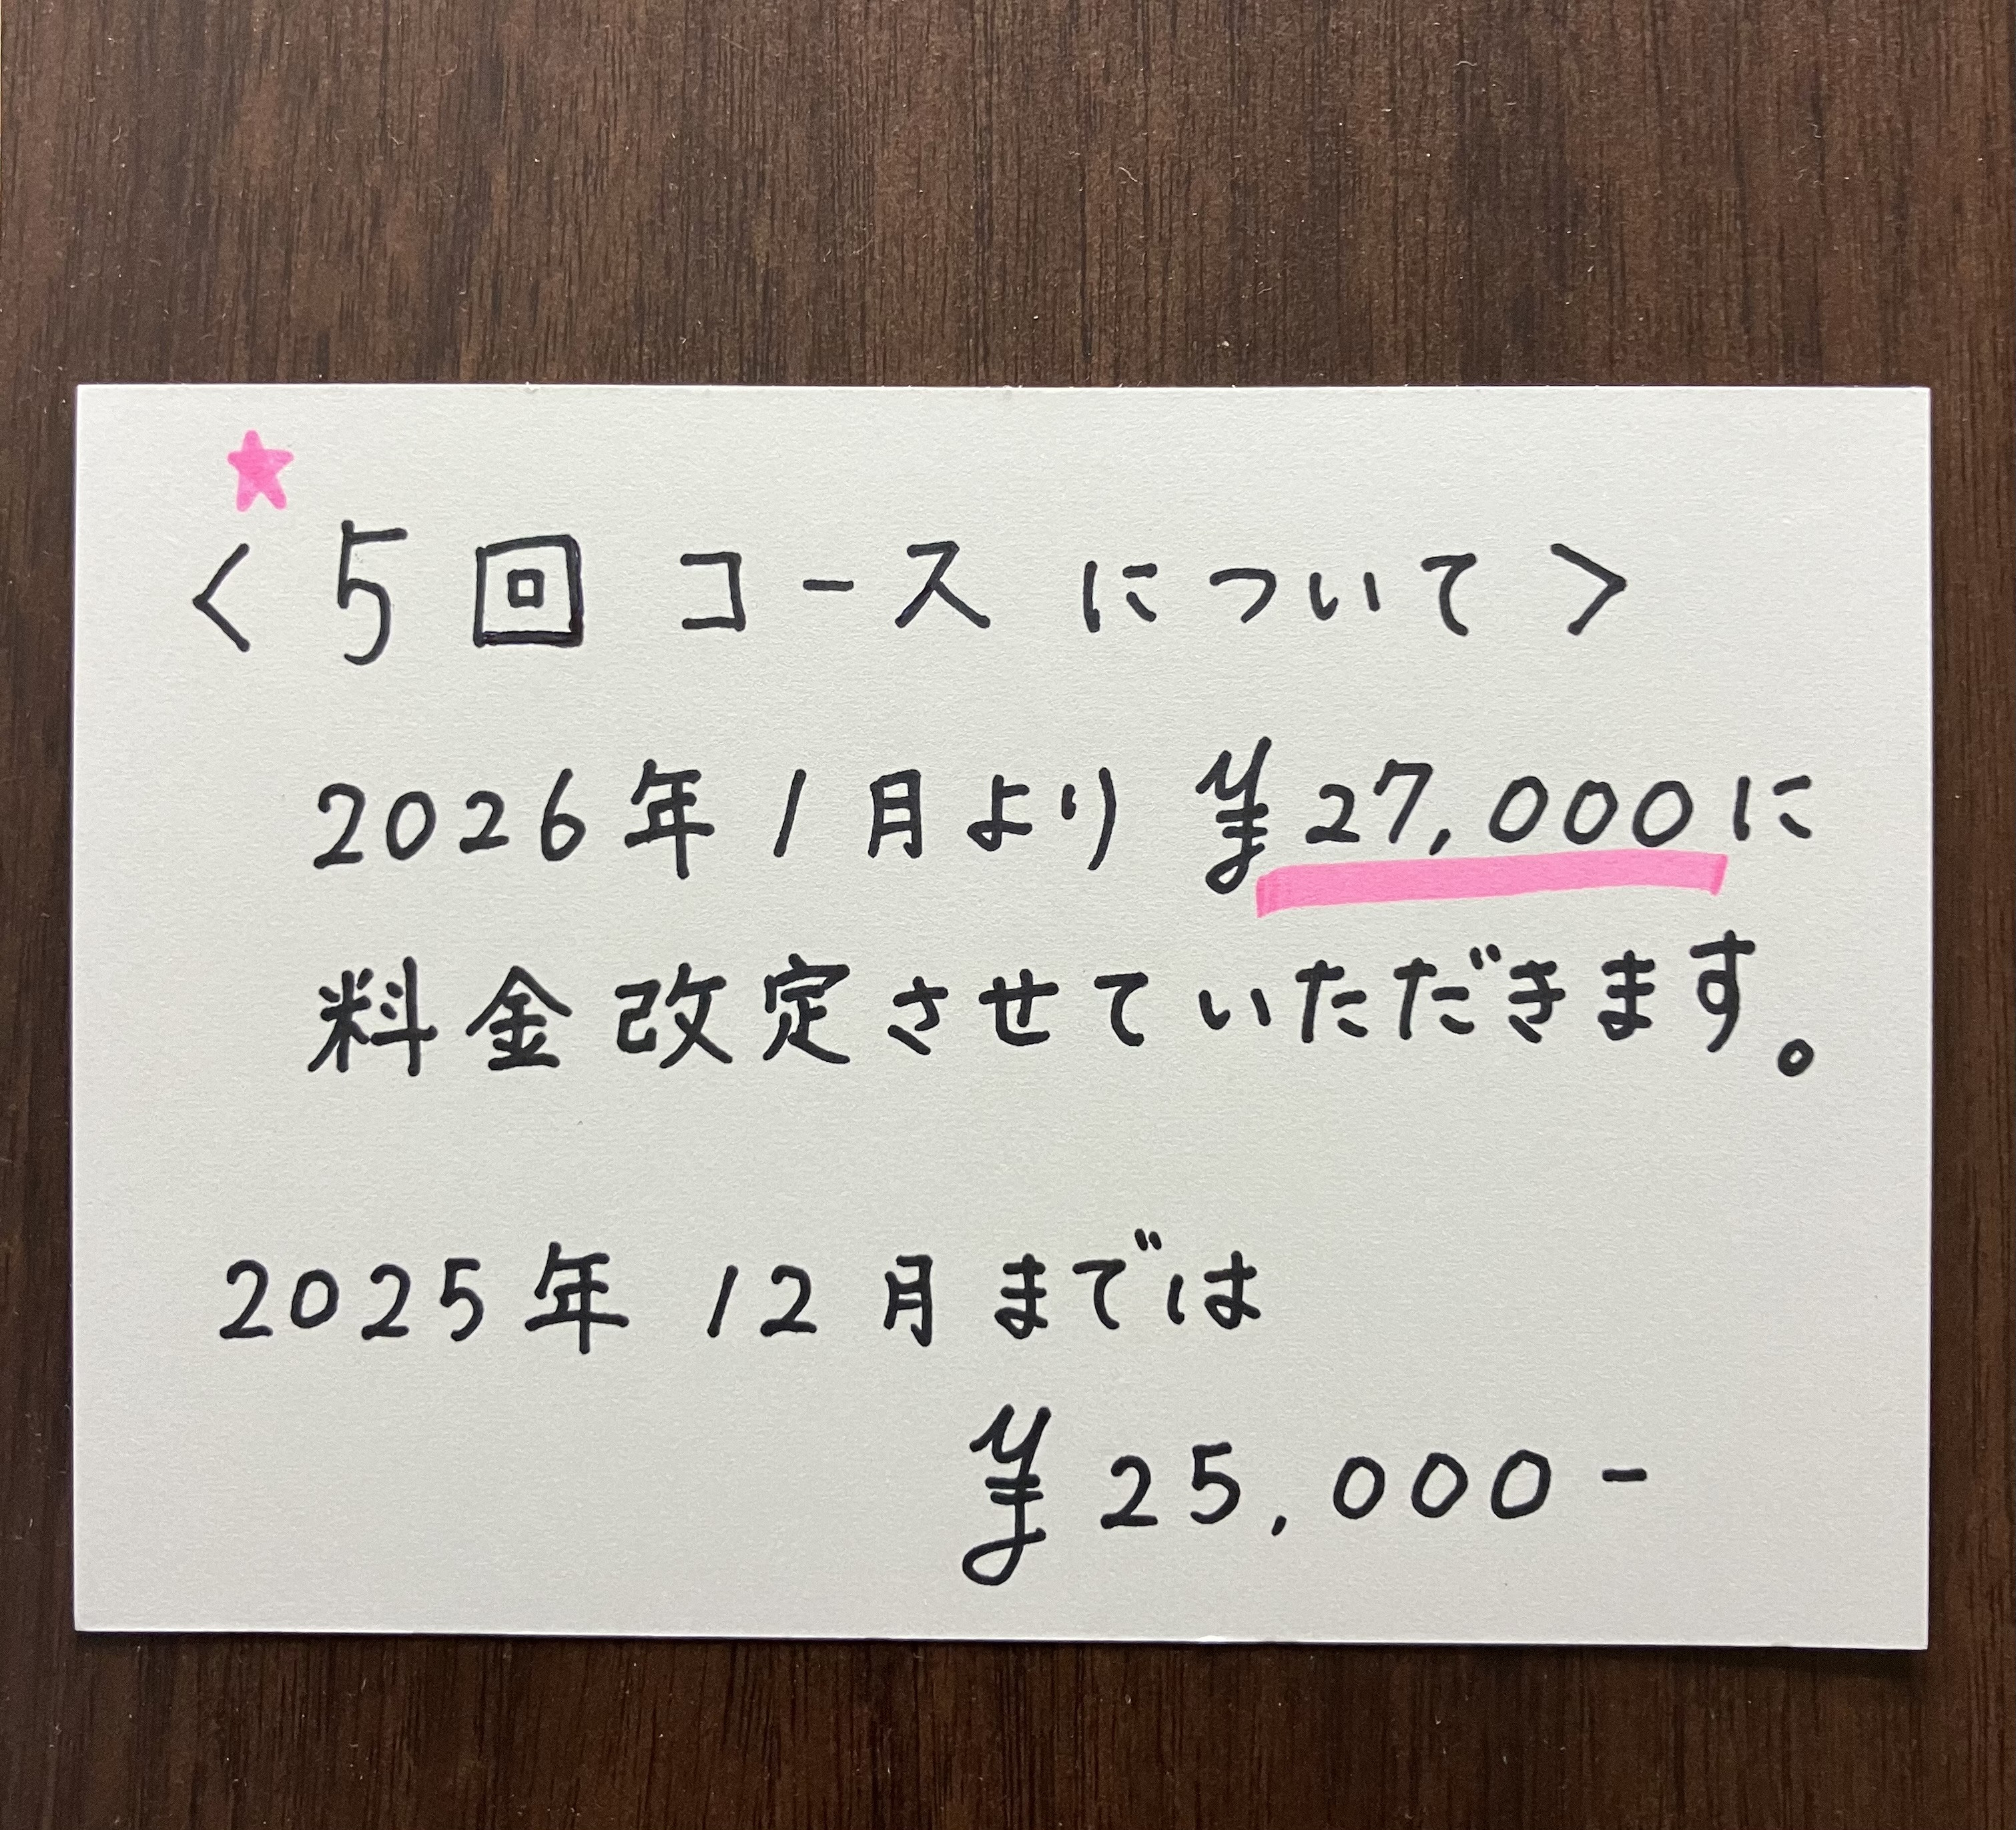 <5回 コース について>
2026年 1月より ¥27,000に
料金改定させていただきます。
2025年 12月までは
¥25,000-